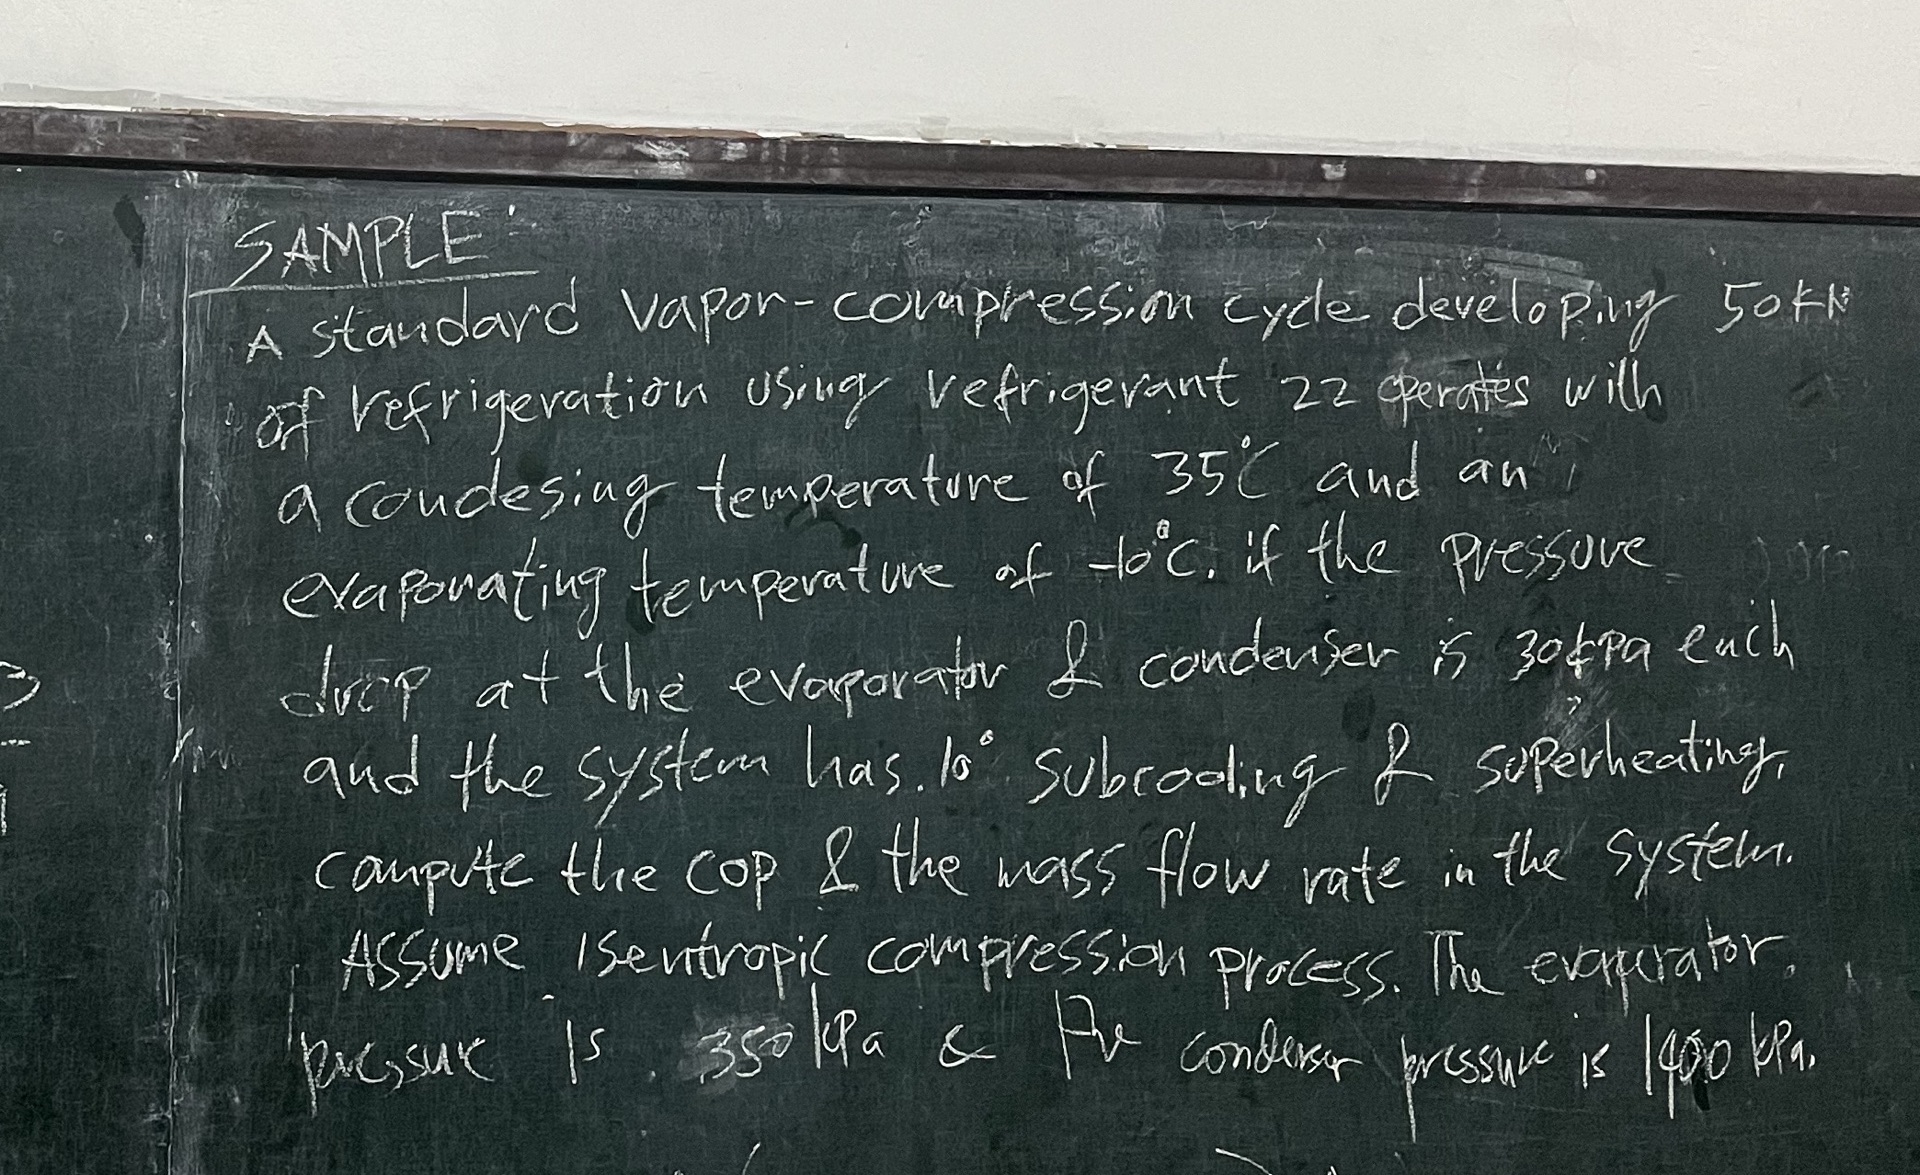 SAMPLE:
A standard vapor-compression cycle developing 50kW
of refrigeration using refrigerant 22 operates with
a condesing temperature of 35°C and an
evaporating temperature of -10°C. if the pressure
drop at the evaporator & condenser is 30kPa each
and the system has 10° subcooling & superheating,
compute the COP & the mass flow rate in the system.
Assume isentropic compression process. The evaporator
pressure is 350 kPa & the condenser pressure is 1400 kPa.